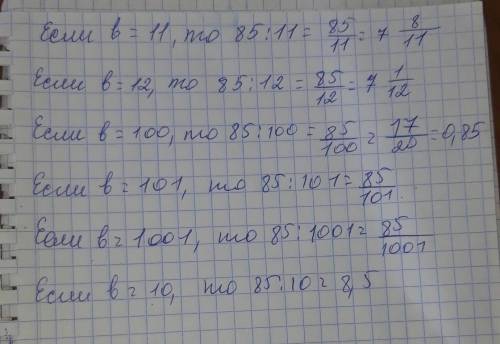 Если в = 11, то 85:11 = 85/11 = 7 8/11
Если в = 12, то 85:12 = 85/12 = 7 1/12
Если в = 100, то 85:100 = 85/100 = 17/20 = 0,85
Если в = 101, то 85:101 = 85/101
Если в = 1001, то 85:1001 = 85/1001
Если в = 10, то 85:10 = 8,5